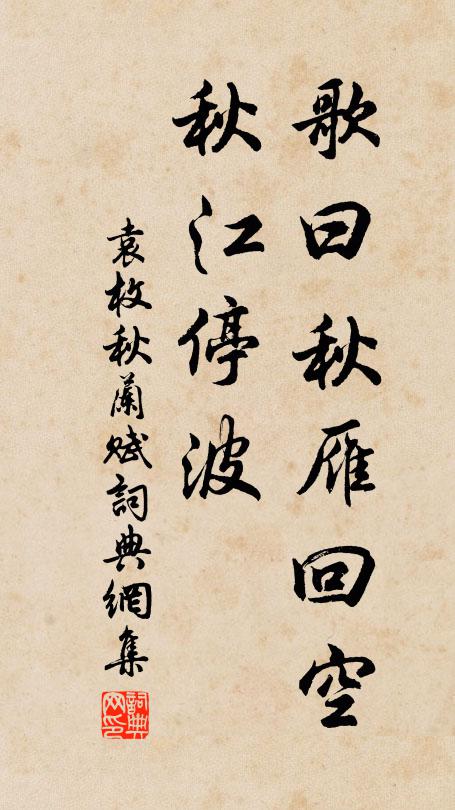 歌曰秋雁回空
秋江停波
袁枚秋蘭賦詞典網集
詞典
网印